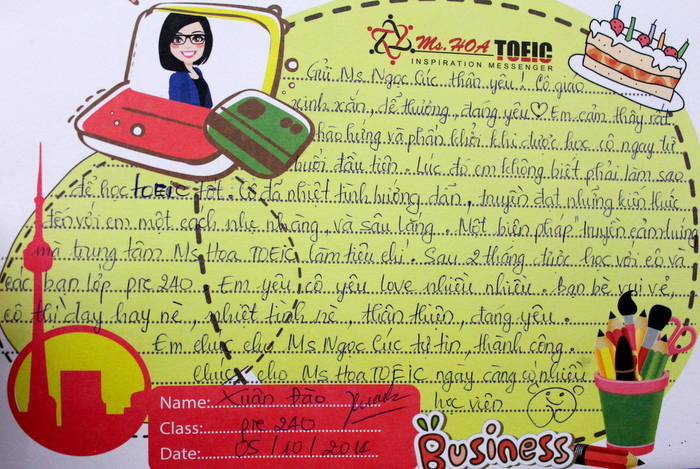 Ms. HOA TOEIC
INSPIRATION MESSENGER
Gửi Ms Ngọc Cúc thân yêu! Cô giáo
xinh xắn, dễ thương, đáng yêu ♡ Em cảm thấy rất
hào hứng và phấn khởi khi được học cô ngay từ
buổi đầu tiên. Lúc đó em không biết phải làm sao
để học TOEIC tốt. Cô đã nhiệt tình hướng dẫn, truyền đạt những kiến thức
đến với em một cách nhẹ nhàng, và sâu lắng. Một biện pháp "truyền cảm hứng
mà trung tâm Ms Hoa TOEIC làm tiêu chí. Sau 2 tháng được học với cô và
các bạn lớp pre 240. Em yêu cô yêu love nhiều nhiều. Bạn bè vui vẻ,
cô thì dạy hay nè, nhiệt tình nè, thân thiện, đáng yêu.
Em chúc cho Ms Ngọc Cúc tự tin, thành công.
Chúc cho Ms Hoa TOEIC ngày càng có nhiều
học viên
Name: Xuân Đào
Class: pre 240
Date: 05/10/2014
Business